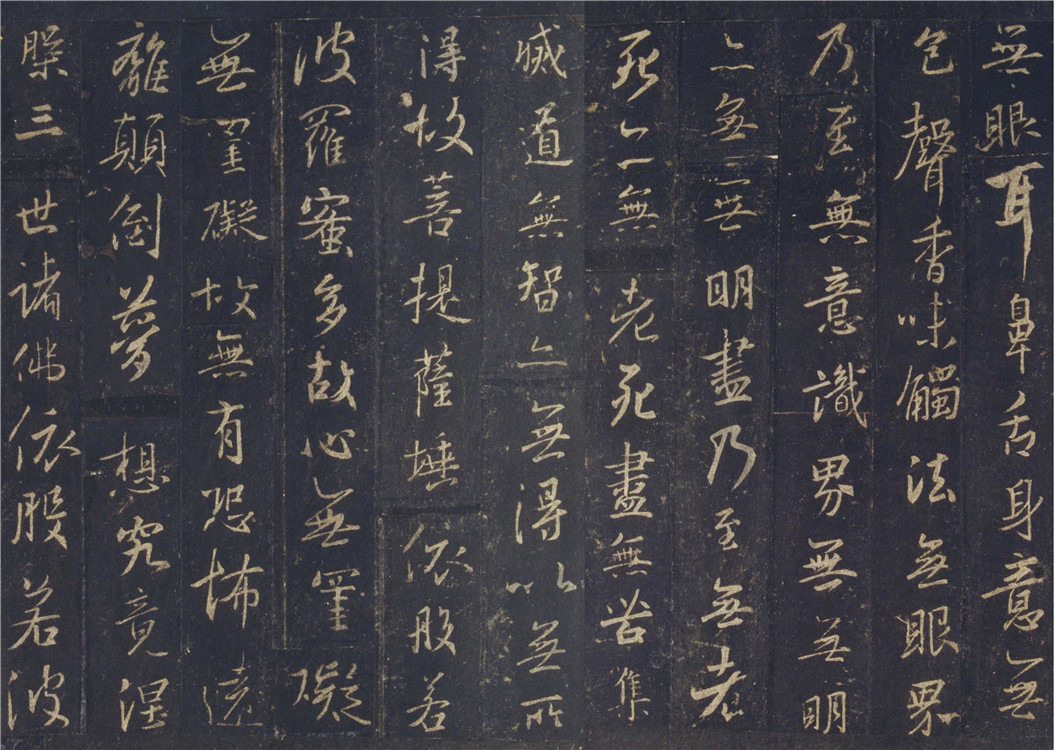 無眼耳鼻舌身意無
色聲香味觸法無眼界
乃至無意識界無無明
亦無無明盡乃至無老
死亦無老死盡無苦集
滅道無智亦無得以無所
得故菩提薩埵依般若
波羅蜜多故心無罣礙
無罣礙故無有恐怖遠
離顛倒夢想究竟涅
槃三世諸佛依般若波